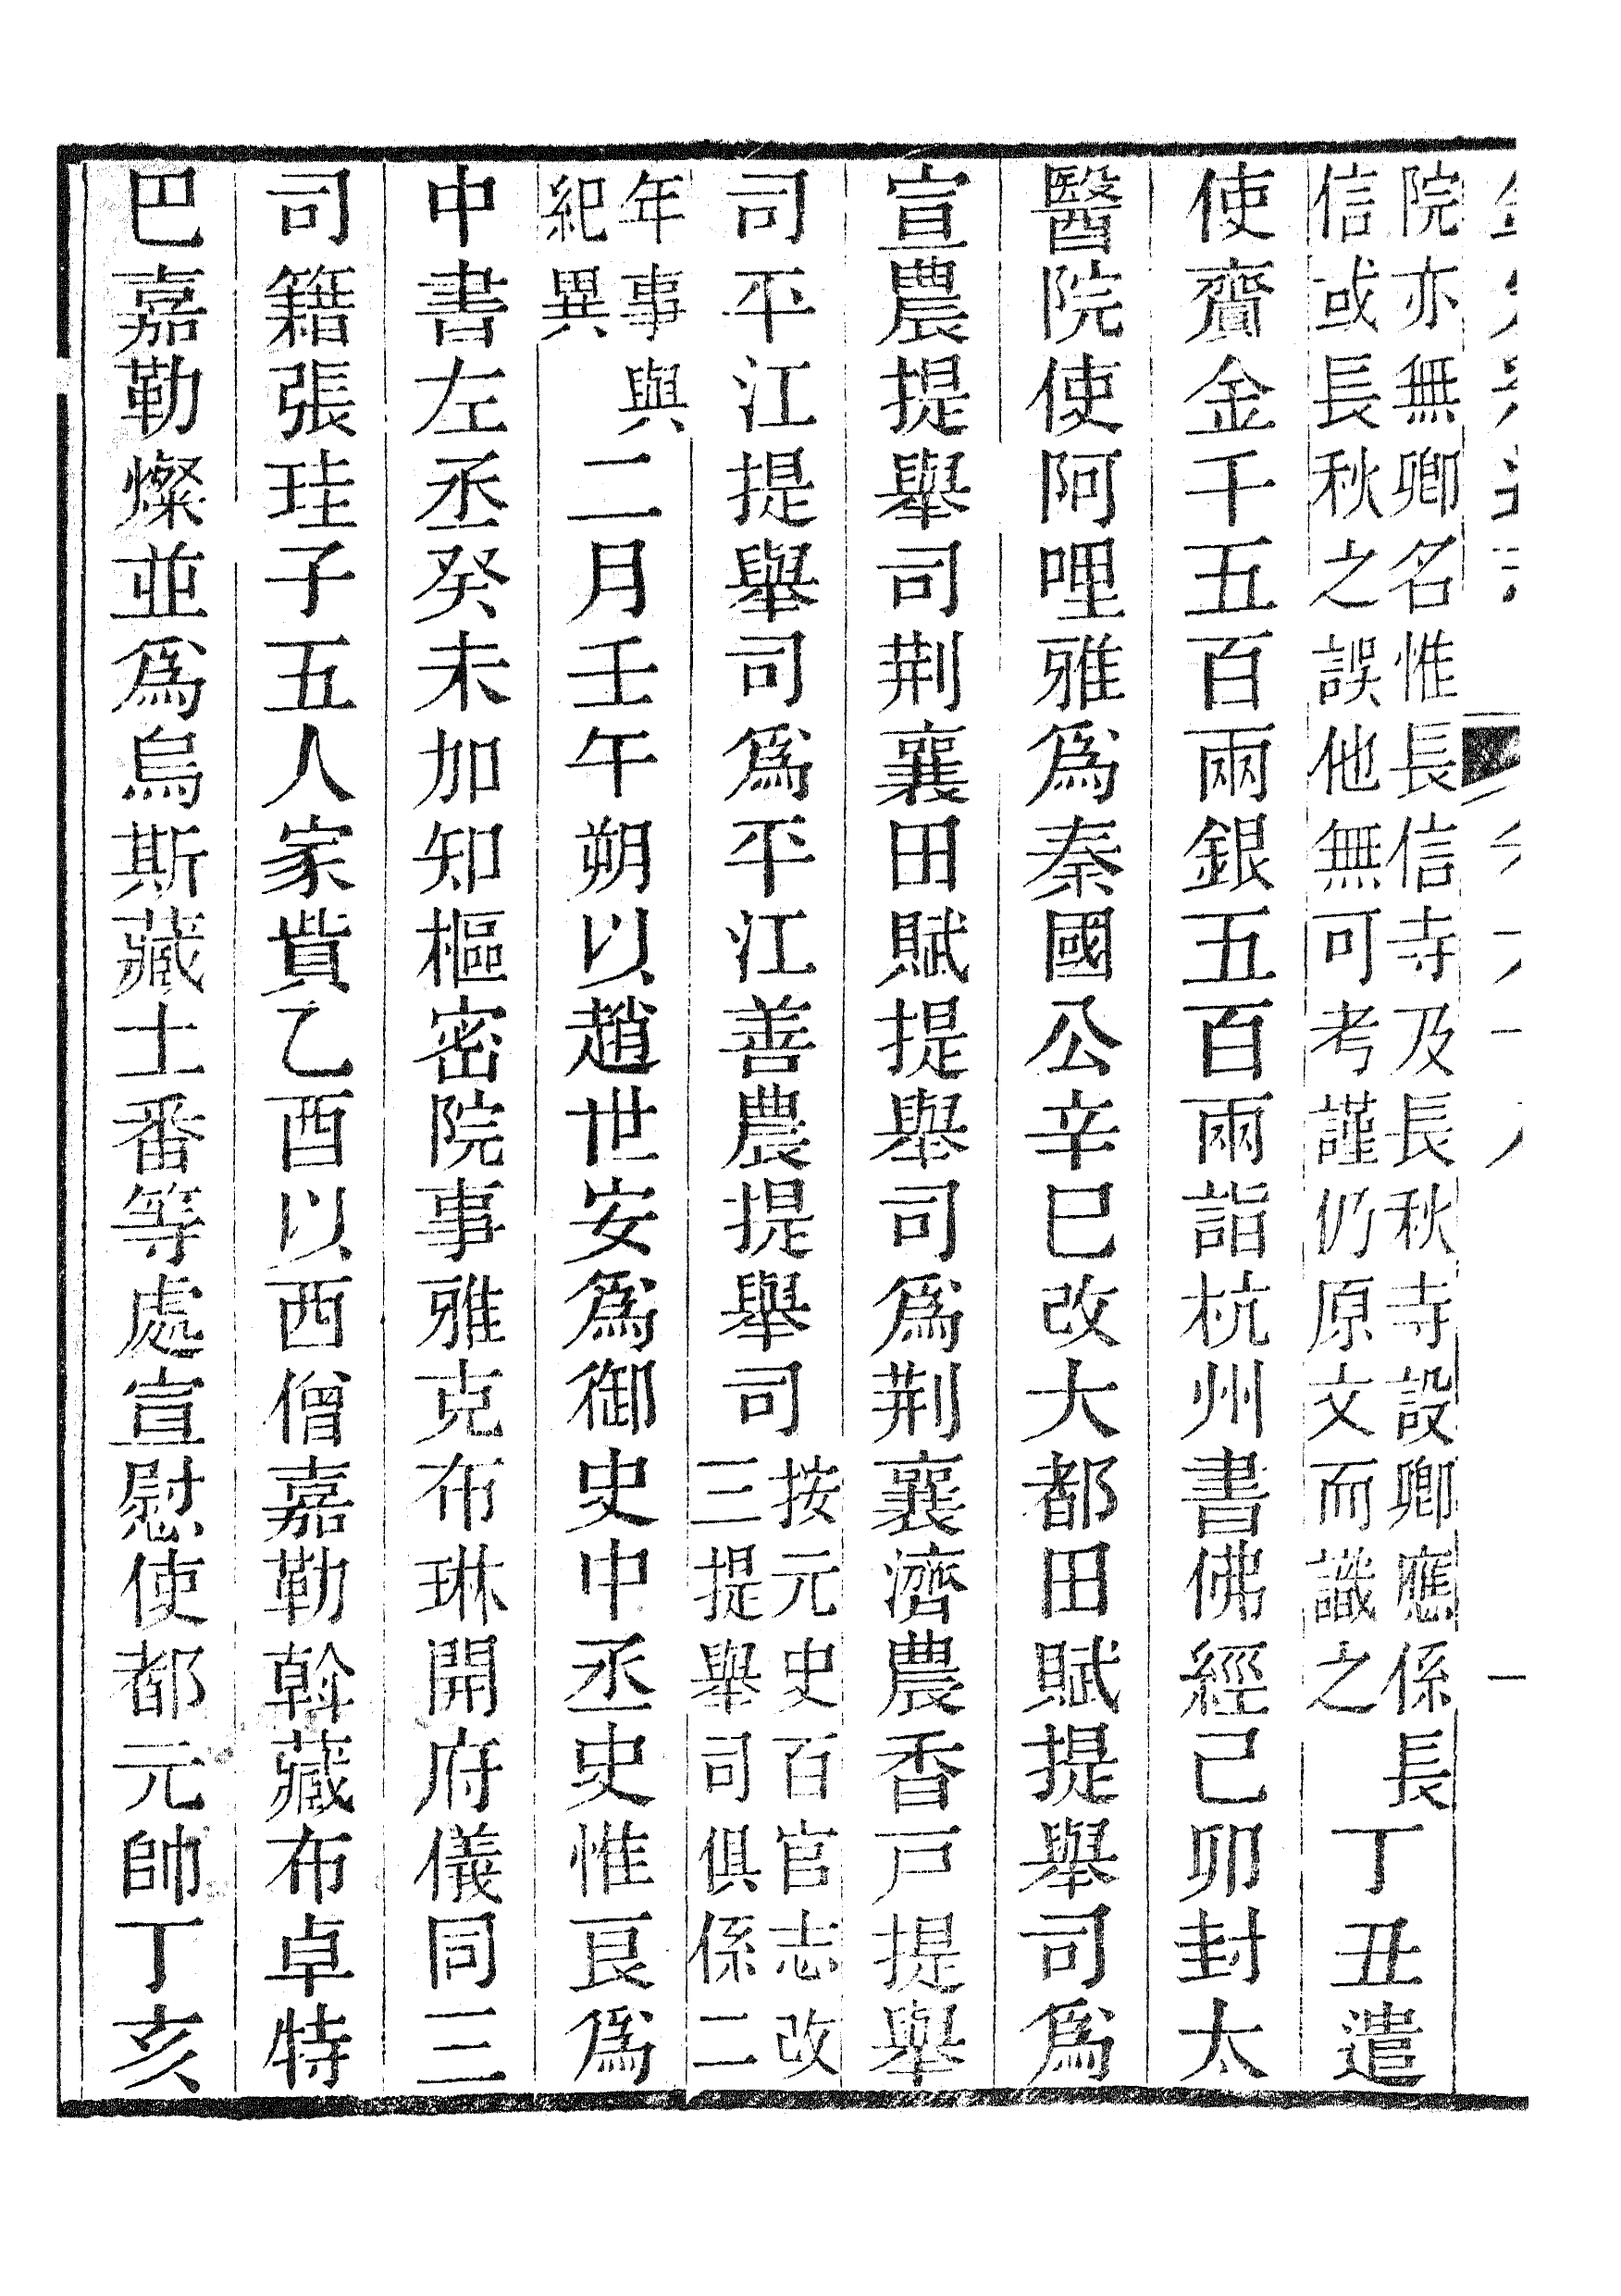 院亦無卿名惟長信寺及長秋寺設卿應係長
信或長秋之誤他無可考謹仍原文而識之
丁丑遣
使齎金千五百兩銀五百兩詣杭州書佛經己卯封太
醫院使阿哩雅為秦國公辛巳改大都田賦提舉司為
宣農提舉司荆襄田賦提舉司為荆襄濟農香戶提舉
司平江提舉司為平江善農提舉司
按元史百官志改
三提舉司俱係二
年事與
紀異
二月壬午朔以趙世安為御史中丞史惟良為
中書左丞癸未加知樞密院事雅克布琳開府儀同三
司籍張珪子五人家貲乙酉以西僧嘉勒斡藏布卓特
巴嘉勒燦並為烏斯藏土番等處宣慰使都元帥丁亥